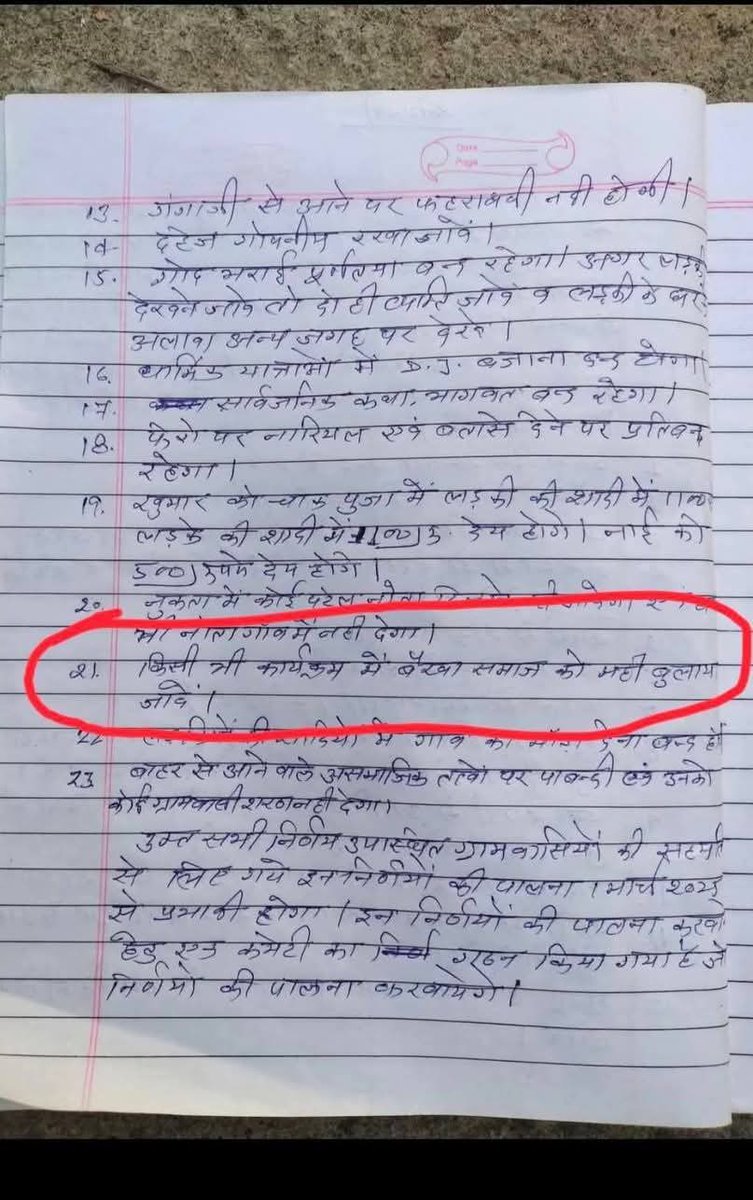 13. गंगाजी से आने पर नही होगी।
14. दहेज गोपनीय रखा जावें।
15. गोद भराई पूर्णतया बन्द रहेगा। अगर लड़की
देखने जावे तो दो ही व्यक्ति जावें व लड़की के घर के
अलावा अन्य जगह पर देखे।
16. धार्मिक यात्राओं में D.J. बजाना बन्द होगा।
17. सार्वजनिक कथा, भागवत बन्द रहेगा।
18. फेरो पर नारियल एवं बतासे देने पर प्रतिबन्ध
रहेगा।
19. खुमार को चाक पुजा में लड़की की शादी में
लड़के की शादी में 1100) रु. देय होगे। नाई को
500) रुपये देय होंगे।
20. नुकता में कोई पटेल
भी गाँव में नही देगा।
21. किसी भी कार्यक्रम में बैरवा समाज को नही बुलाया
जावें।
22 में गांव का देना बन्द
23 बाहर से आने वाले असमाजिक तत्वों पर पाबन्दी एवं उनको
कोई ग्रामवासी शरण नही देगा।
उक्त सभी निर्णय उपस्थित ग्रामवासियों की सहमति
से लिए गये इन निर्णयों की पालना 1 मार्च
से प्रभावी होगा। इन निर्णयों की पालना करवाने
हेतु एक कमेटी का गठन किया गया है जो
निर्णयो की पालना करवायेगे।